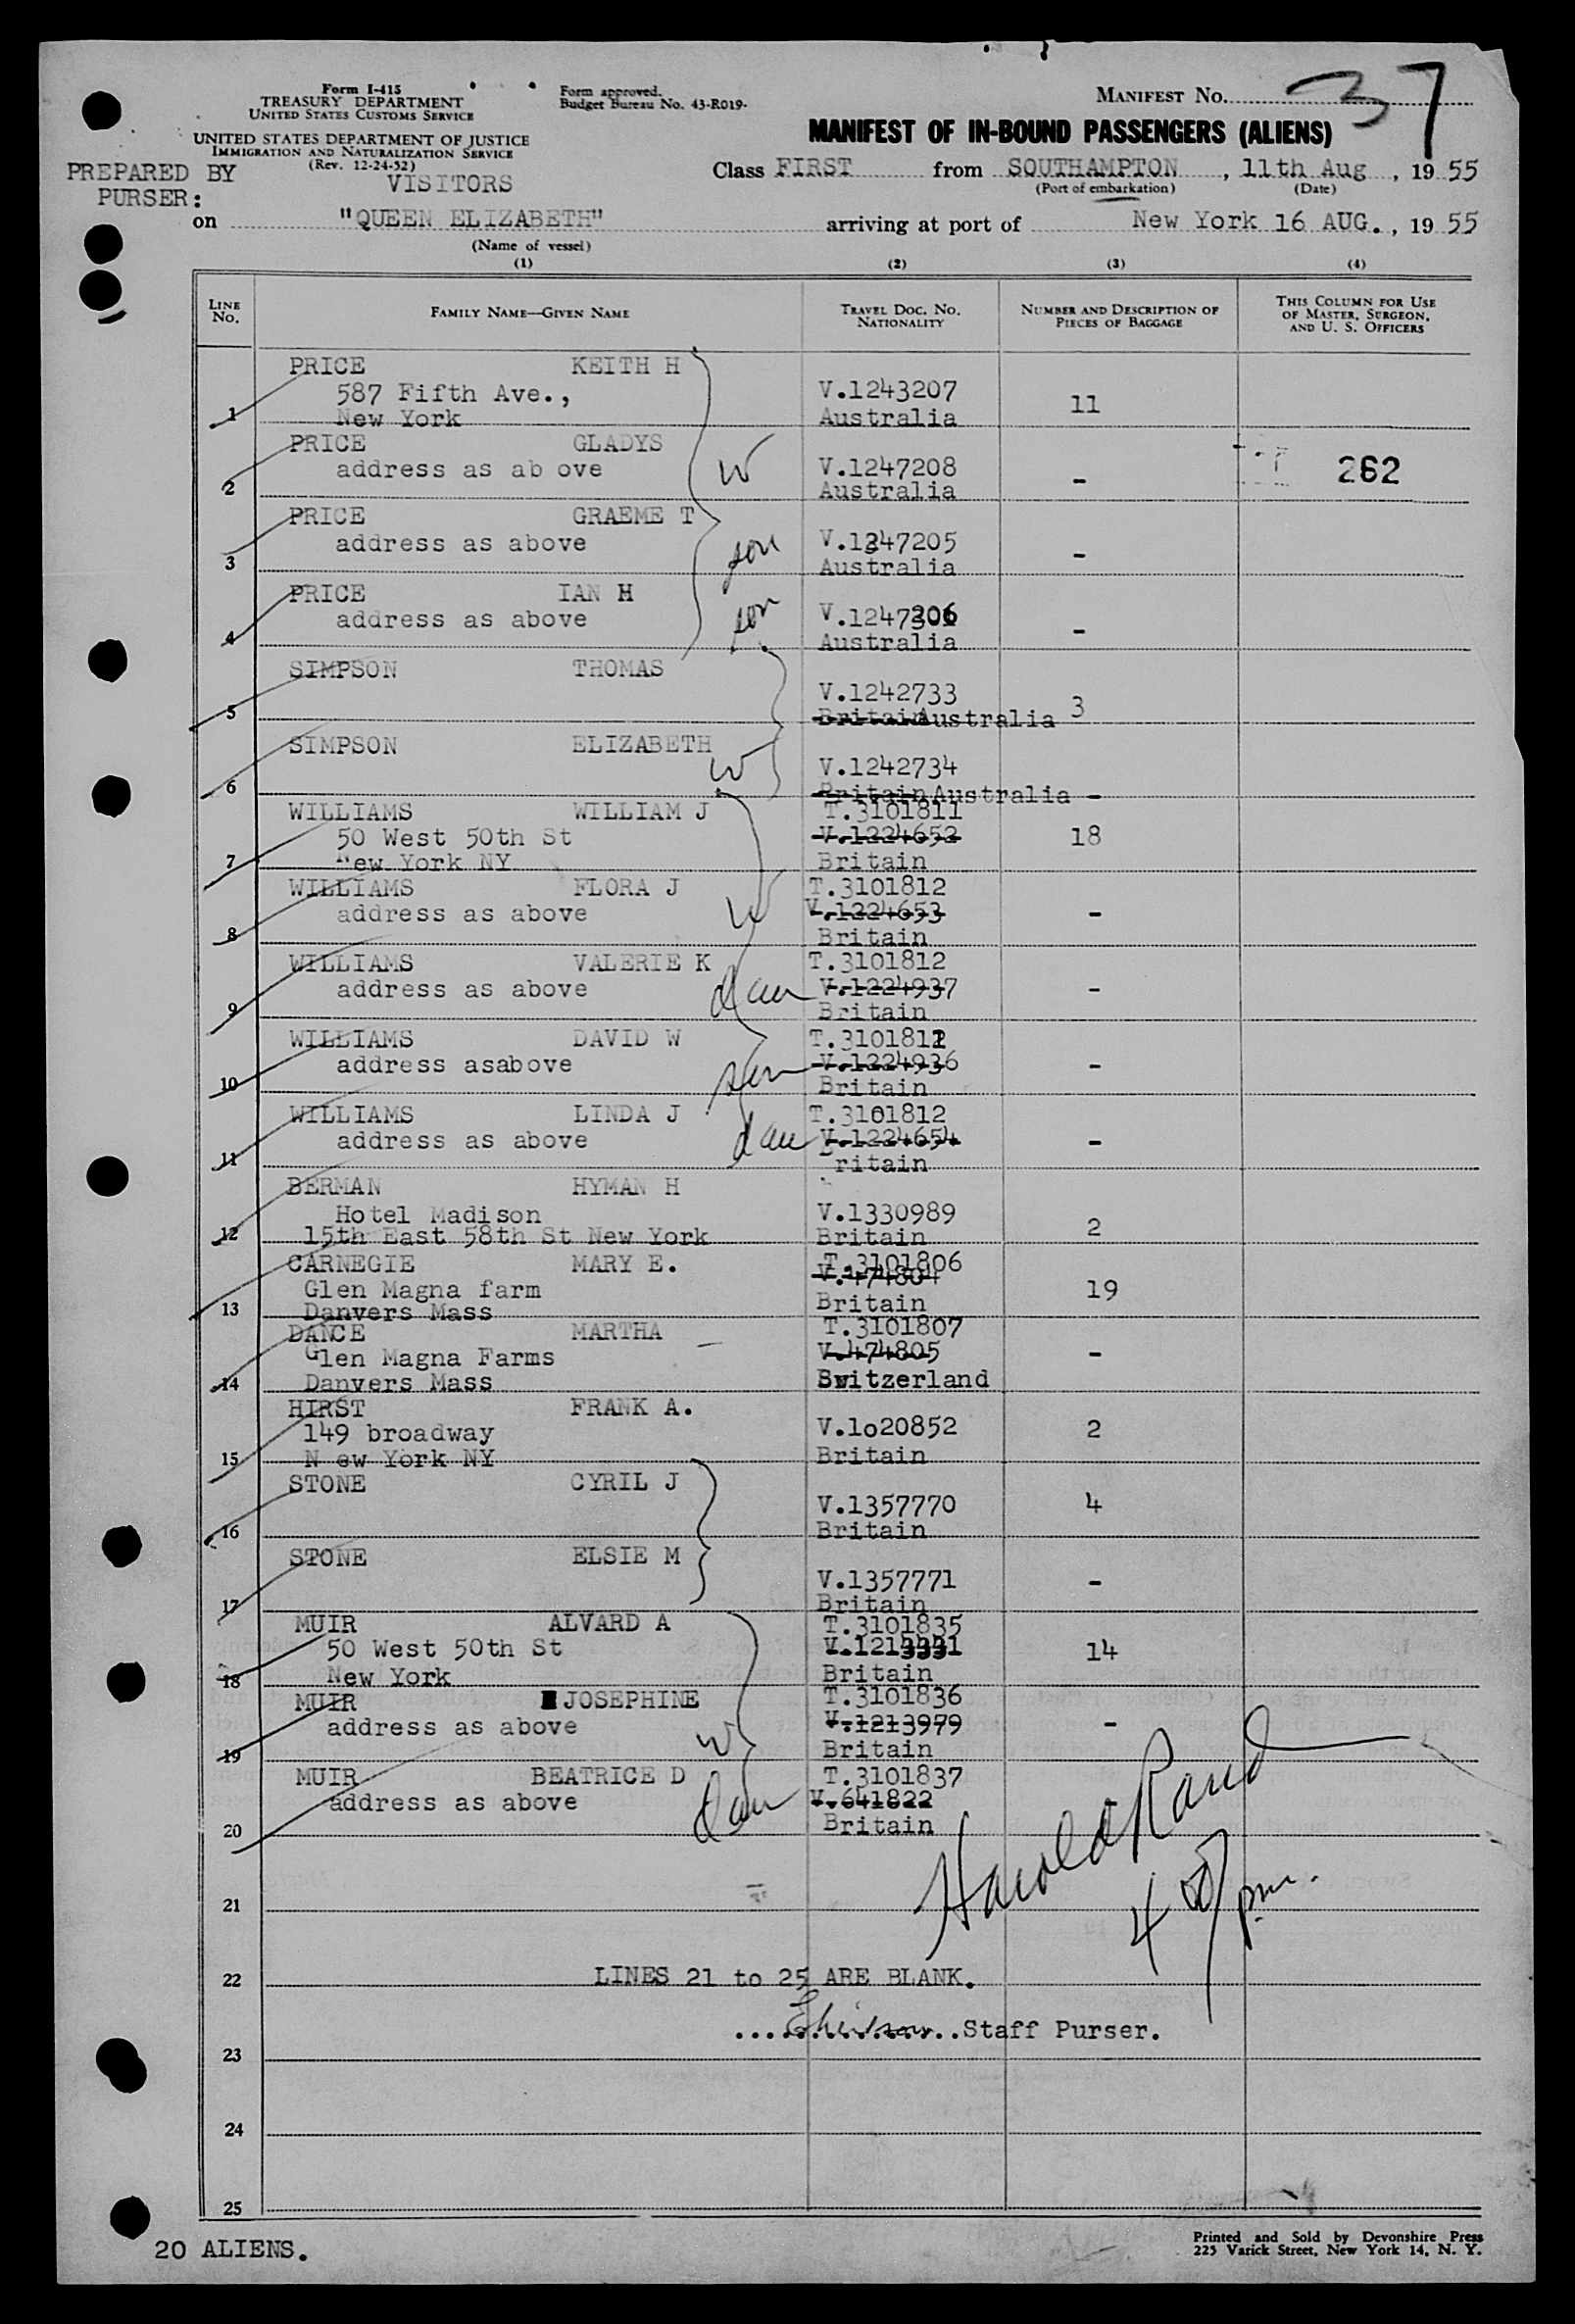 Form I-415
TREASURY DEPARTMENT
UNITED STATES CUSTOMS SERVICE
Form approved.
Budget Bureau No. 43-R019.
MANIFEST NO. 37
UNITED STATES DEPARTMENT OF JUSTICE
IMMIGRATION AND NATURALIZATION SERVICE
(Rev. 12-24-52)
MANIFEST OF IN-BOUND PASSENGERS (ALIENS)
PREPARED BY
PURSER:
VISITORS
Class FIRST from SOUTHAMPTON, 11th Aug, 19 55
(Port of embarkation) (Date)
on "QUEEN ELIZABETH" arriving at port of New York 16 AUG., 19 55
(Name of vessel)
(1) (2) (3) (4)
LINE No.
FAMILY NAME—GIVEN NAME
TRAVEL DOC. NO.
NATIONALITY
NUMBER AND DESCRIPTION OF
PIECES OF BAGGAGE
THIS COLUMN FOR USE
OF MASTER, SURGEON,
AND U. S. OFFICERS
PRICE KEITH H
587 Fifth Ave., V.1243207 11
1 New York Australia
PRICE GLADYS
address as ab ove W V.1247208 - 262
2 Australia
PRICE GRAEME T
address as above son V.1247205 -
3 Australia
PRICE IAN H
address as above son V.1247206 -
4 Australia
SIMPSON THOMAS
V.1242733 3
5 Britain Australia
SIMPSON ELIZABETH
W V.1242734
6 Britain Australia -
WILLIAMS WILLIAM J T.3101811
50 West 50th St V.1224652 18
7 New York NY Britain
WILLIAMS FLORA J T.3101812
address as above W V.1224653 -
8 Britain
WILLIAMS VALERIE K T.3101812
address as above dau V.1224937 -
9 Britain
WILLIAMS DAVID W T.3101811
address asabove son V.1224936 -
10 Britain
WILLIAMS LINDA J T.3101812
address as above dau V.1224654 -
11 ritain
BERMAN HYMAN H
Hotel Madison V.1330989 2
12 15th East 58th St New York Britain
CARNEGIE MARY E. T.3101806
Glen Magna farm V.474804 19
13 Danvers Mass Britain
DANCE MARTHA — T.3101807
Glen Magna Farms V.474805 -
14 Danvers Mass Switzerland
HIRST FRANK A.
149 broadway V.1o20852 2
15 N ew York NY Britain
STONE CYRIL J
V.1357770 4
16 Britain
STONE ELSIE M
V.1357771 -
17 Britain
MUIR ALVARD A T.3101835
50 West 50th St 14
18 New York Britain
MUIR JOSEPHINE T.3101836
address as above W V.1213979 -
19 Britain
MUIR BEATRICE D T.3101837
address as above dau V.641822 -
20 Britain
Harold Rand
21 4 pm.
22 LINES 21 to 25 ARE BLANK.
Staff Purser.
23
24
25
20 ALIENS.
Printed and Sold by Devonshire Press
225 Varick Street, New York 14, N. Y.